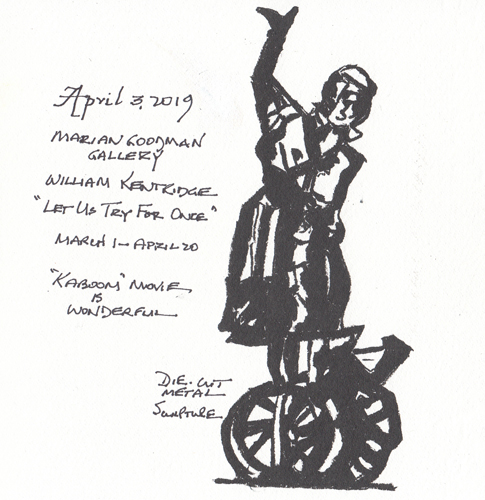 April 3, 2019
MARIAN GOODMAN
GALLERY
WILLIAM KENTRIDGE
"LET US TRY FOR ONCE"
MARCH 1 - APRIL 20
"KABOOM" MOVIE
IS
WONDERFUL
DIE-CUT
METAL
SCULPTURE